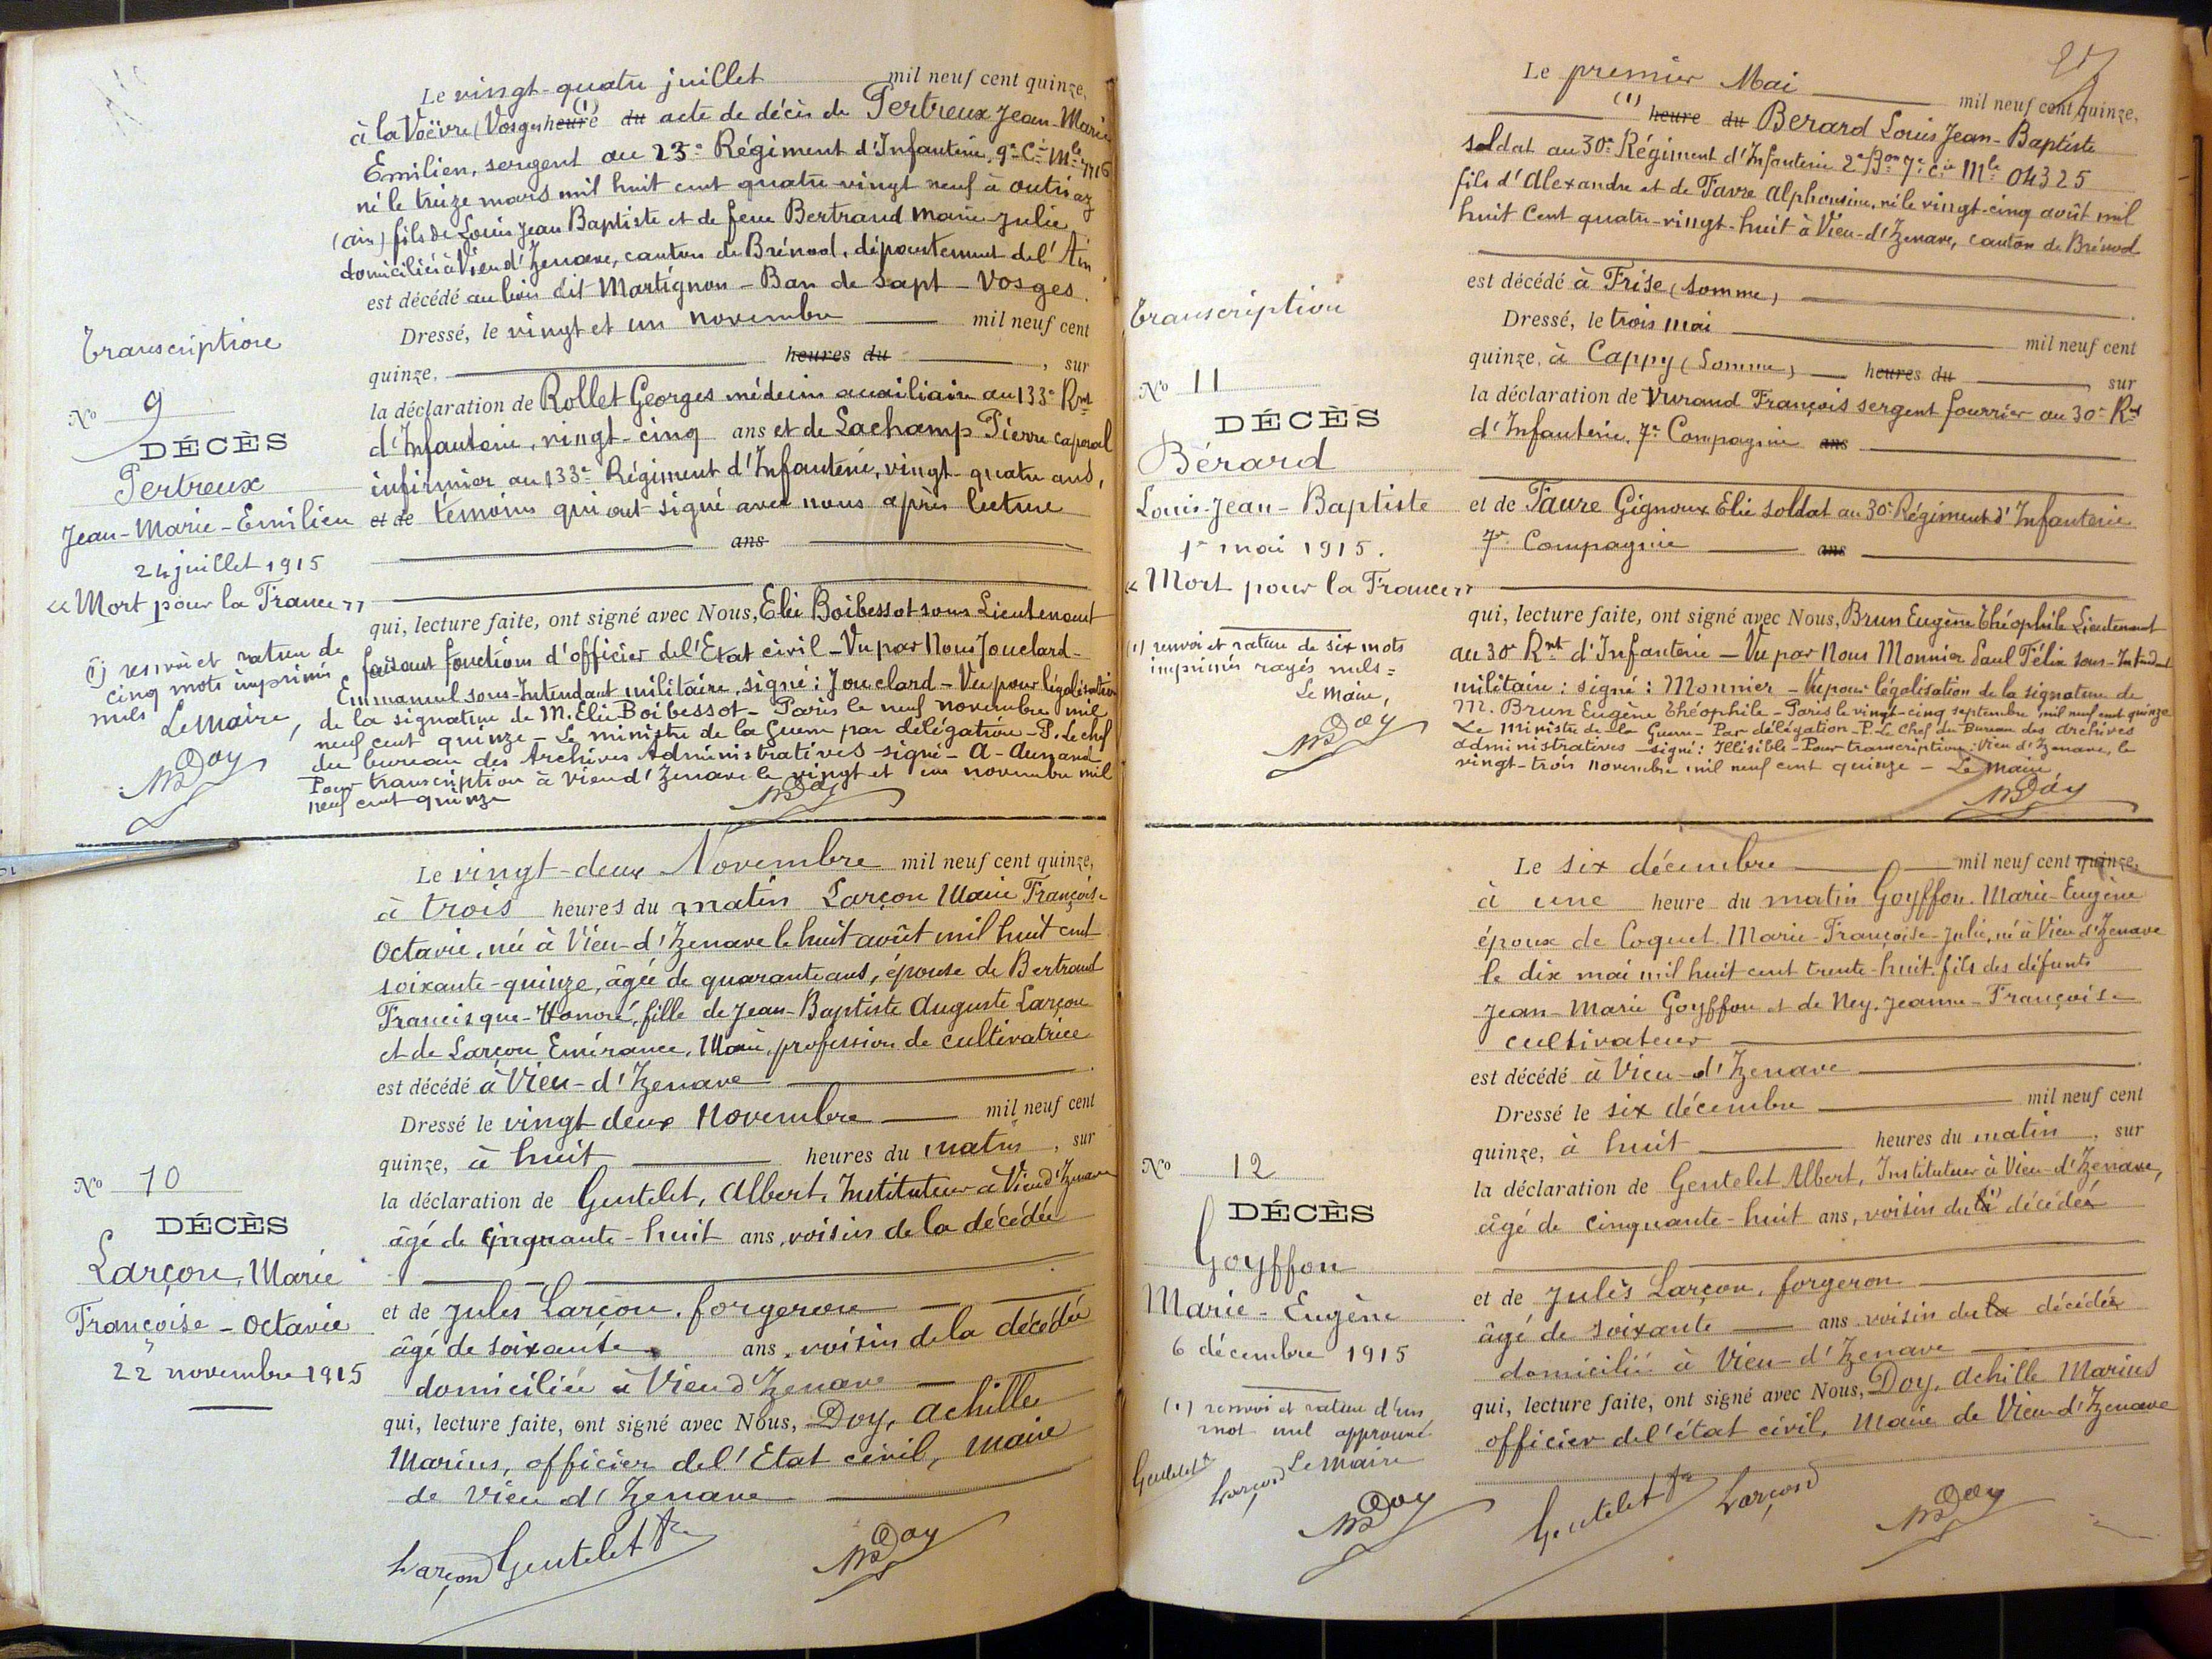 Le vingt-quatre juillet mil neuf cent quinze,
à la Voëvre (Vosges heure (1) du acte de décès de Pertreux Jean-Marie
Emilien, sergent au 23e Régiment d'Infanterie, 9e Cie Mle 4716
né le treize mars mil huit cent quatre-vingt neuf à outriaz
(ain) fils de Louis Jean Baptiste et de feue Bertrand Marie-Julie
domiciliés à Vieu d'Izenave, canton de Brénod, département de l'Ain
est décédé au lieu dit Martignon - Ban de Sapt - Vosges.
Dressé, le vingt et un novembre mil neuf cent
quinze, heures du , sur
la déclaration de Rollet Georges médecin auxiliaire au 133e Rmt
d'Infanterie, vingt-cinq ans et de Lachamp Pierre caporal
infirmier au 133e Régiment d'Infanterie, vingt-quatre ans,
et de témoins qui ont signé avec nous après lecture
ans
qui, lecture faite, ont signé avec Nous, Elie Boibessot sous Lieutenant
faisant fonctions d'officier de l'Etat civil - Vu par Nous Jouclard-
Emmanuel sous-Intendant militaire, signé : Jouclard - Vu pour légalisation
de la signature de M. Elie Boibessot - Paris le neuf novembre mil
neuf cent quinze - Le ministre de la Guerre par délégation - P. le chef
du bureau des Archives Administratives signé - A -
Pour transcription à Vieu d'Izenave le vingt et un novembre mil
neuf cent quinze
Doy
Transcription
No 9
DÉCÈS
Pertreux
Jean-Marie-Emilien
24 juillet 1915
« Mort pour la France »
(1) renvoi et rature de
cinq mots imprimés
nuls
Le Maire,
Doy
Le vingt-deux Novembre mil neuf cent quinze,
à trois heures du matin Larçon Marie Françoise
Octavie, née à Vieu-d'Izenave le huit août mil huit cent
soixante-quinze, âgée de quarante ans, épouse de Bertrand
Francisque-Honoré, fille de Jean-Baptiste Auguste Larçon
et de Larçon Emérance, Marie, profession de cultivatrice
est décédé à Vieu-d'Izenave
Dressé le vingt deux Novembre mil neuf cent
quinze, à huit heures du matin , sur
la déclaration de Gentelet, Albert, Instituteur à Vieu d'Izenave
âgé de cinquante-huit ans, voisin de la décédée
et de Jules Larçon, forgeron
âgé de soixante ans, voisin de la décédée
domiciliée à Vieu d'Izenave
qui, lecture faite, ont signé avec Nous, Doy, Achille
Marius, officier de l'Etat civil, Maire
de Vieu d'Izenave
Larçon Gentelet Doy
No 10
DÉCÈS
Larçon, Marie
Françoise-Octavie
22 novembre 1915
Le premier Mai mil neuf cent quinze,
(1) heure du Berard Louis Jean-Baptiste
soldat au 30e Régiment d'Infanterie 2e Bon 7e Cie Mle 04325
fils d'Alexandre et de Favre Alphonsine, né le vingt-cinq août mil
huit cent quatre-vingt-huit à Vieu-d'Izenave, canton de Brénod
est décédé à Frise (Somme)
Dressé, le trois mai mil neuf cent
quinze, à Cappy (Somme) heures du , sur
la déclaration de Vurand François sergent fourrier au 30e Rmt
d'Infanterie, 7e Compagnie ans
et de Faure Gignoux Elie soldat au 30e Régiment d'Infanterie
7e Compagnie ans
qui, lecture faite, ont signé avec Nous, Brun Eugène Théophile Lieutenant
au 30e Rmt d'Infanterie - Vu par Nous Monnier Paul Félix sous-Intendant
militaire : signé : Monnier - Vu pour légalisation de la signature de
M. Brun Eugène Théophile - Paris le vingt-cinq septembre mil neuf cent quinze
Le Ministre de la Guerre - Par délégation - P. Le Chef du Bureau des Archives
administratives - signé : Illisible - Pour transcription : Vieu d'Izenave, le
vingt-trois novembre mil neuf cent quinze - Le Maire
Doy
Transcription
No 11
DÉCÈS
Bérard
Louis-Jean-Baptiste
1er mai 1915.
« Mort pour la France »
(1) renvoi et rature de six mots
imprimés rayés nuls =
Le Maire,
Doy
Le six décembre mil neuf cent quinze,
à une heure du matin Goyffon. Marie-Eugène
époux de Coquet. Marie-Françoise-Julie, né à Vieu d'Izenave
le dix mai mil huit cent trente-huit, fils des défunts
Jean-Marie Goyffon et de Ney, Jeanne-Françoise
cultivateur
est décédé à Vieu-d'Izenave
Dressé le six décembre mil neuf cent
quinze, à huit heures du matin , sur
la déclaration de Gentelet Albert, Instituteur à Vieu-d'Izenave,
âgé de cinquante-huit ans, voisin du la (1) décédée
et de Jules Larçon, forgeron
âgé de soixante ans voisin du la décédée
domicilié à Vieu-d'Izenave
qui, lecture faite, ont signé avec Nous, Doy, Achille Marius
officier de l'état civil, Maire de Vieu d'Izenave
Gentelet Larçon Doy
No 12
DÉCÈS
Goyffon
Marie-Eugène
6 décembre 1915
(1) renvoi et rature d'un
mot nul approuvé
Le Maire
Gentelet Larçon Doy